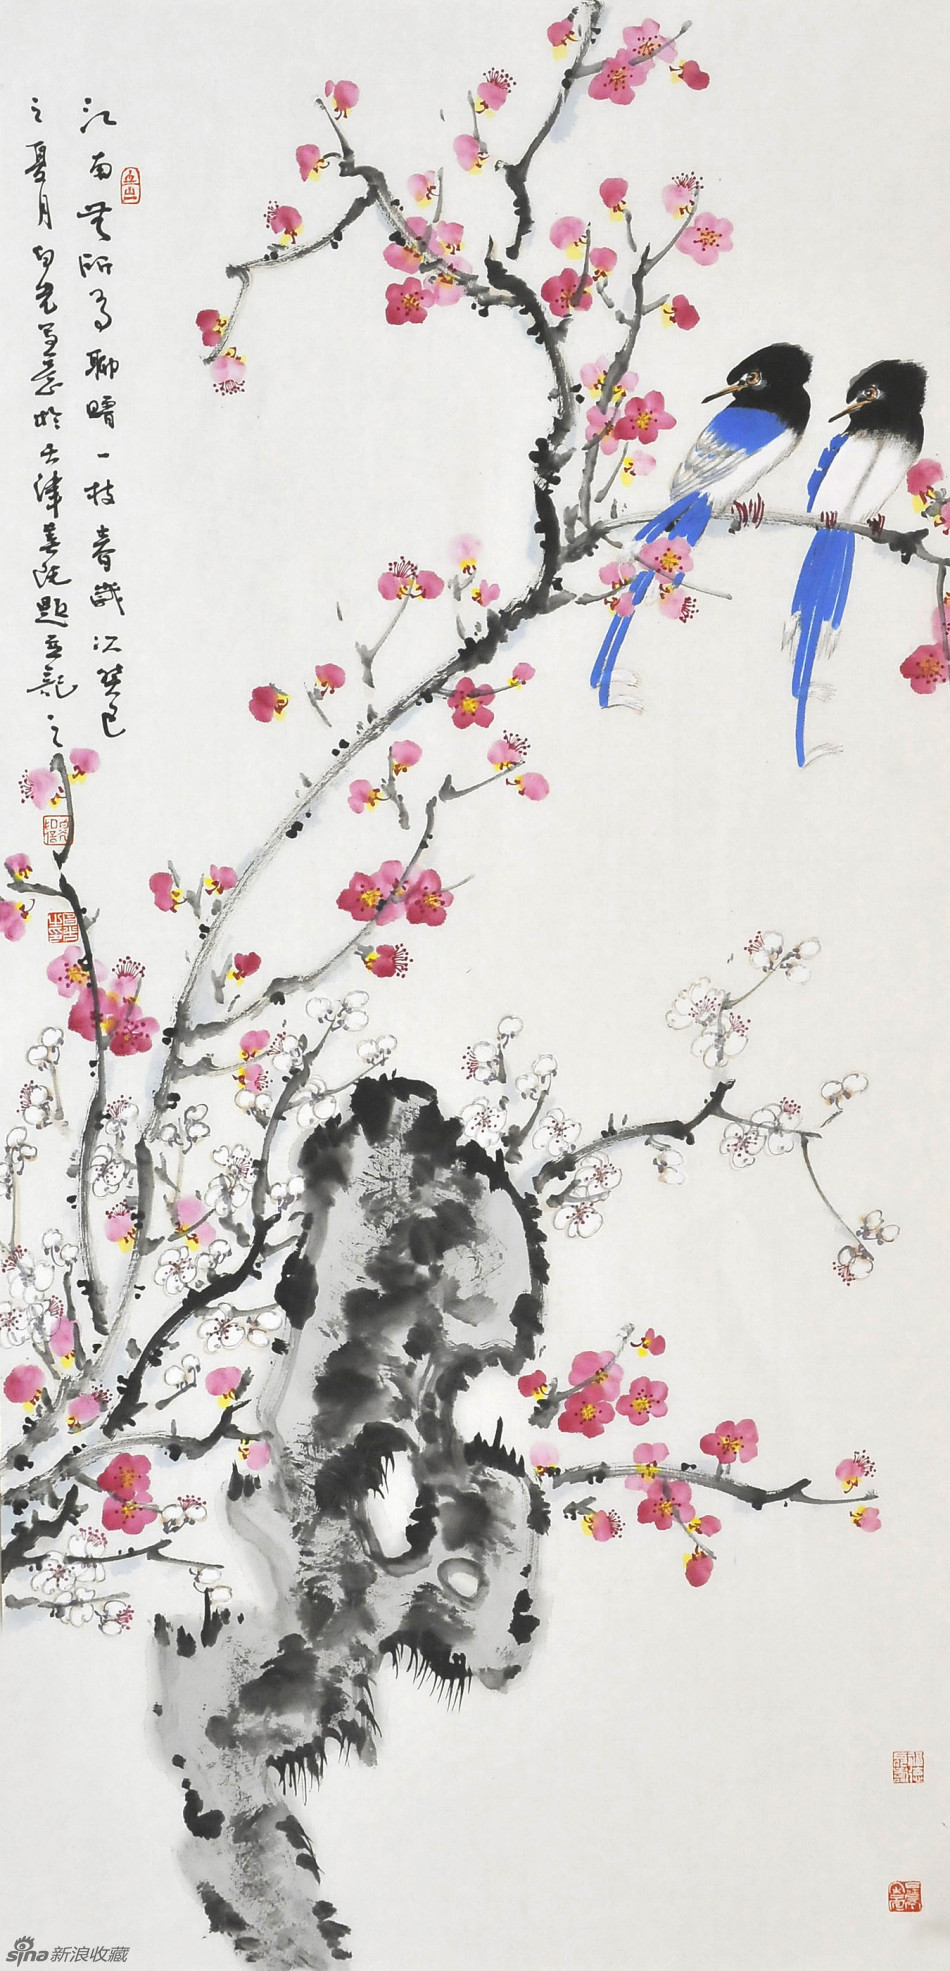 江南无所有聊赠一枝春岁次癸巳
之夏月白光写意於天津美院题画记之
sina新浪收藏